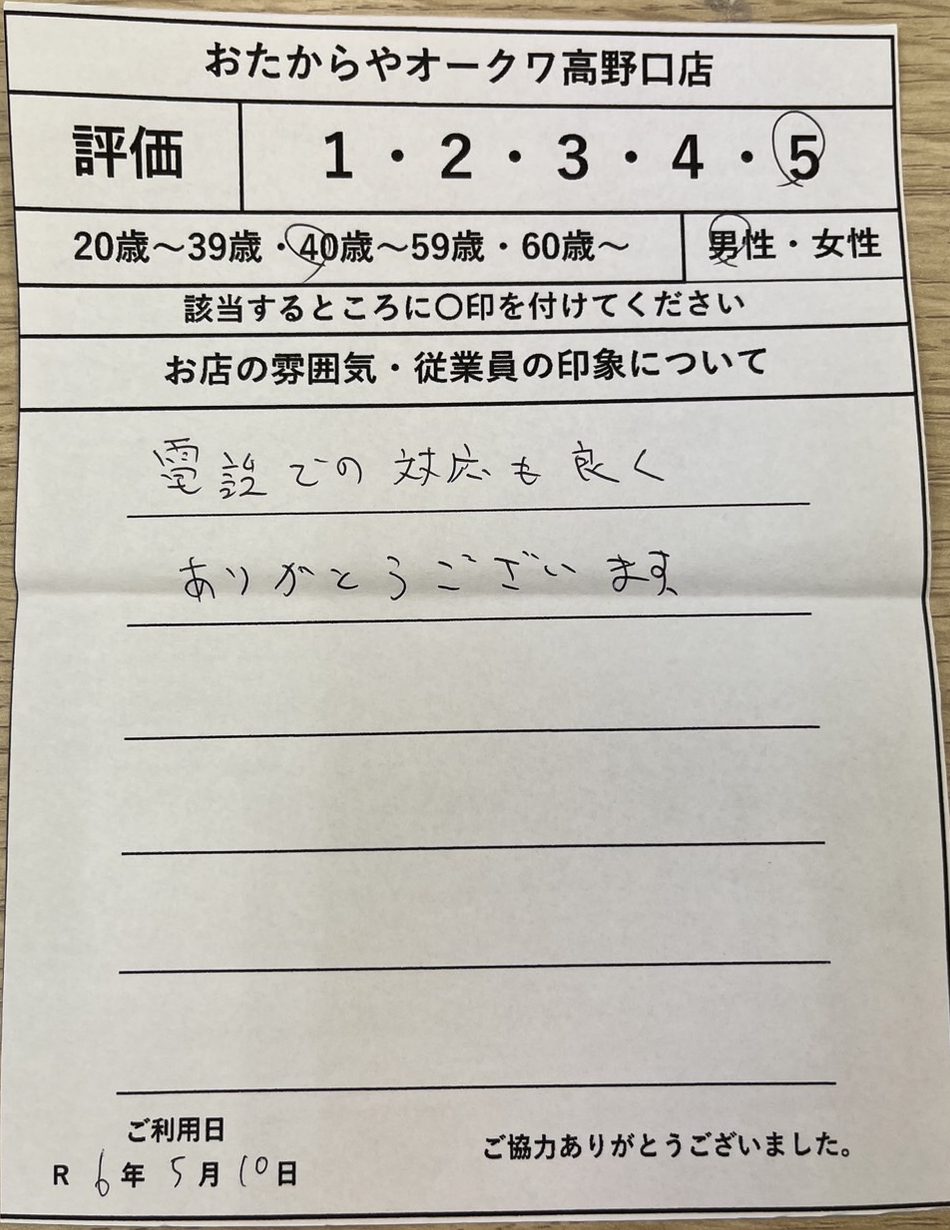 おたからやオークワ高野口店
評価 1・2・3・4・5
20歳～39歳・40歳～59歳・60歳～ 男性・女性
該当するところに〇印を付けてください
お店の雰囲気・従業員の印象について
電設での対応も良く
ありがとうございます
ご利用日
R 6年 5月 10日
ご協力ありがとうございました。